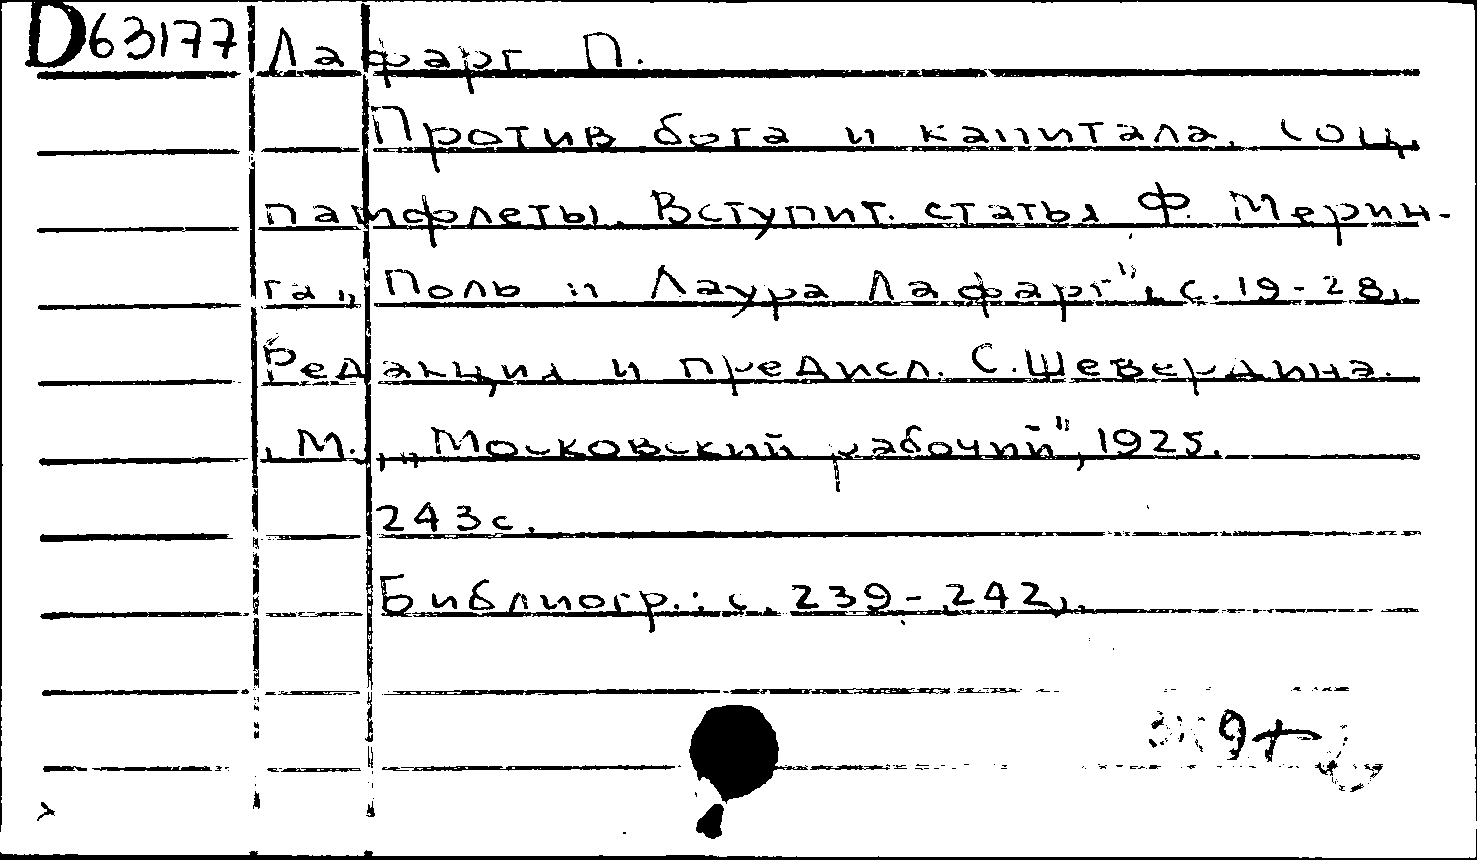 D63177 Лафарг П.
Против бога и капитала. Соц.
памфлеты. Вступит. статья Ф. Мерин-
га „Поль и Лаура Лафарг", с. 19-28,
Редакция и предисл. С. Шевердина.
М., „Московский рабочий", 1925.
243 с.
Библиогр.: с. 239-242.